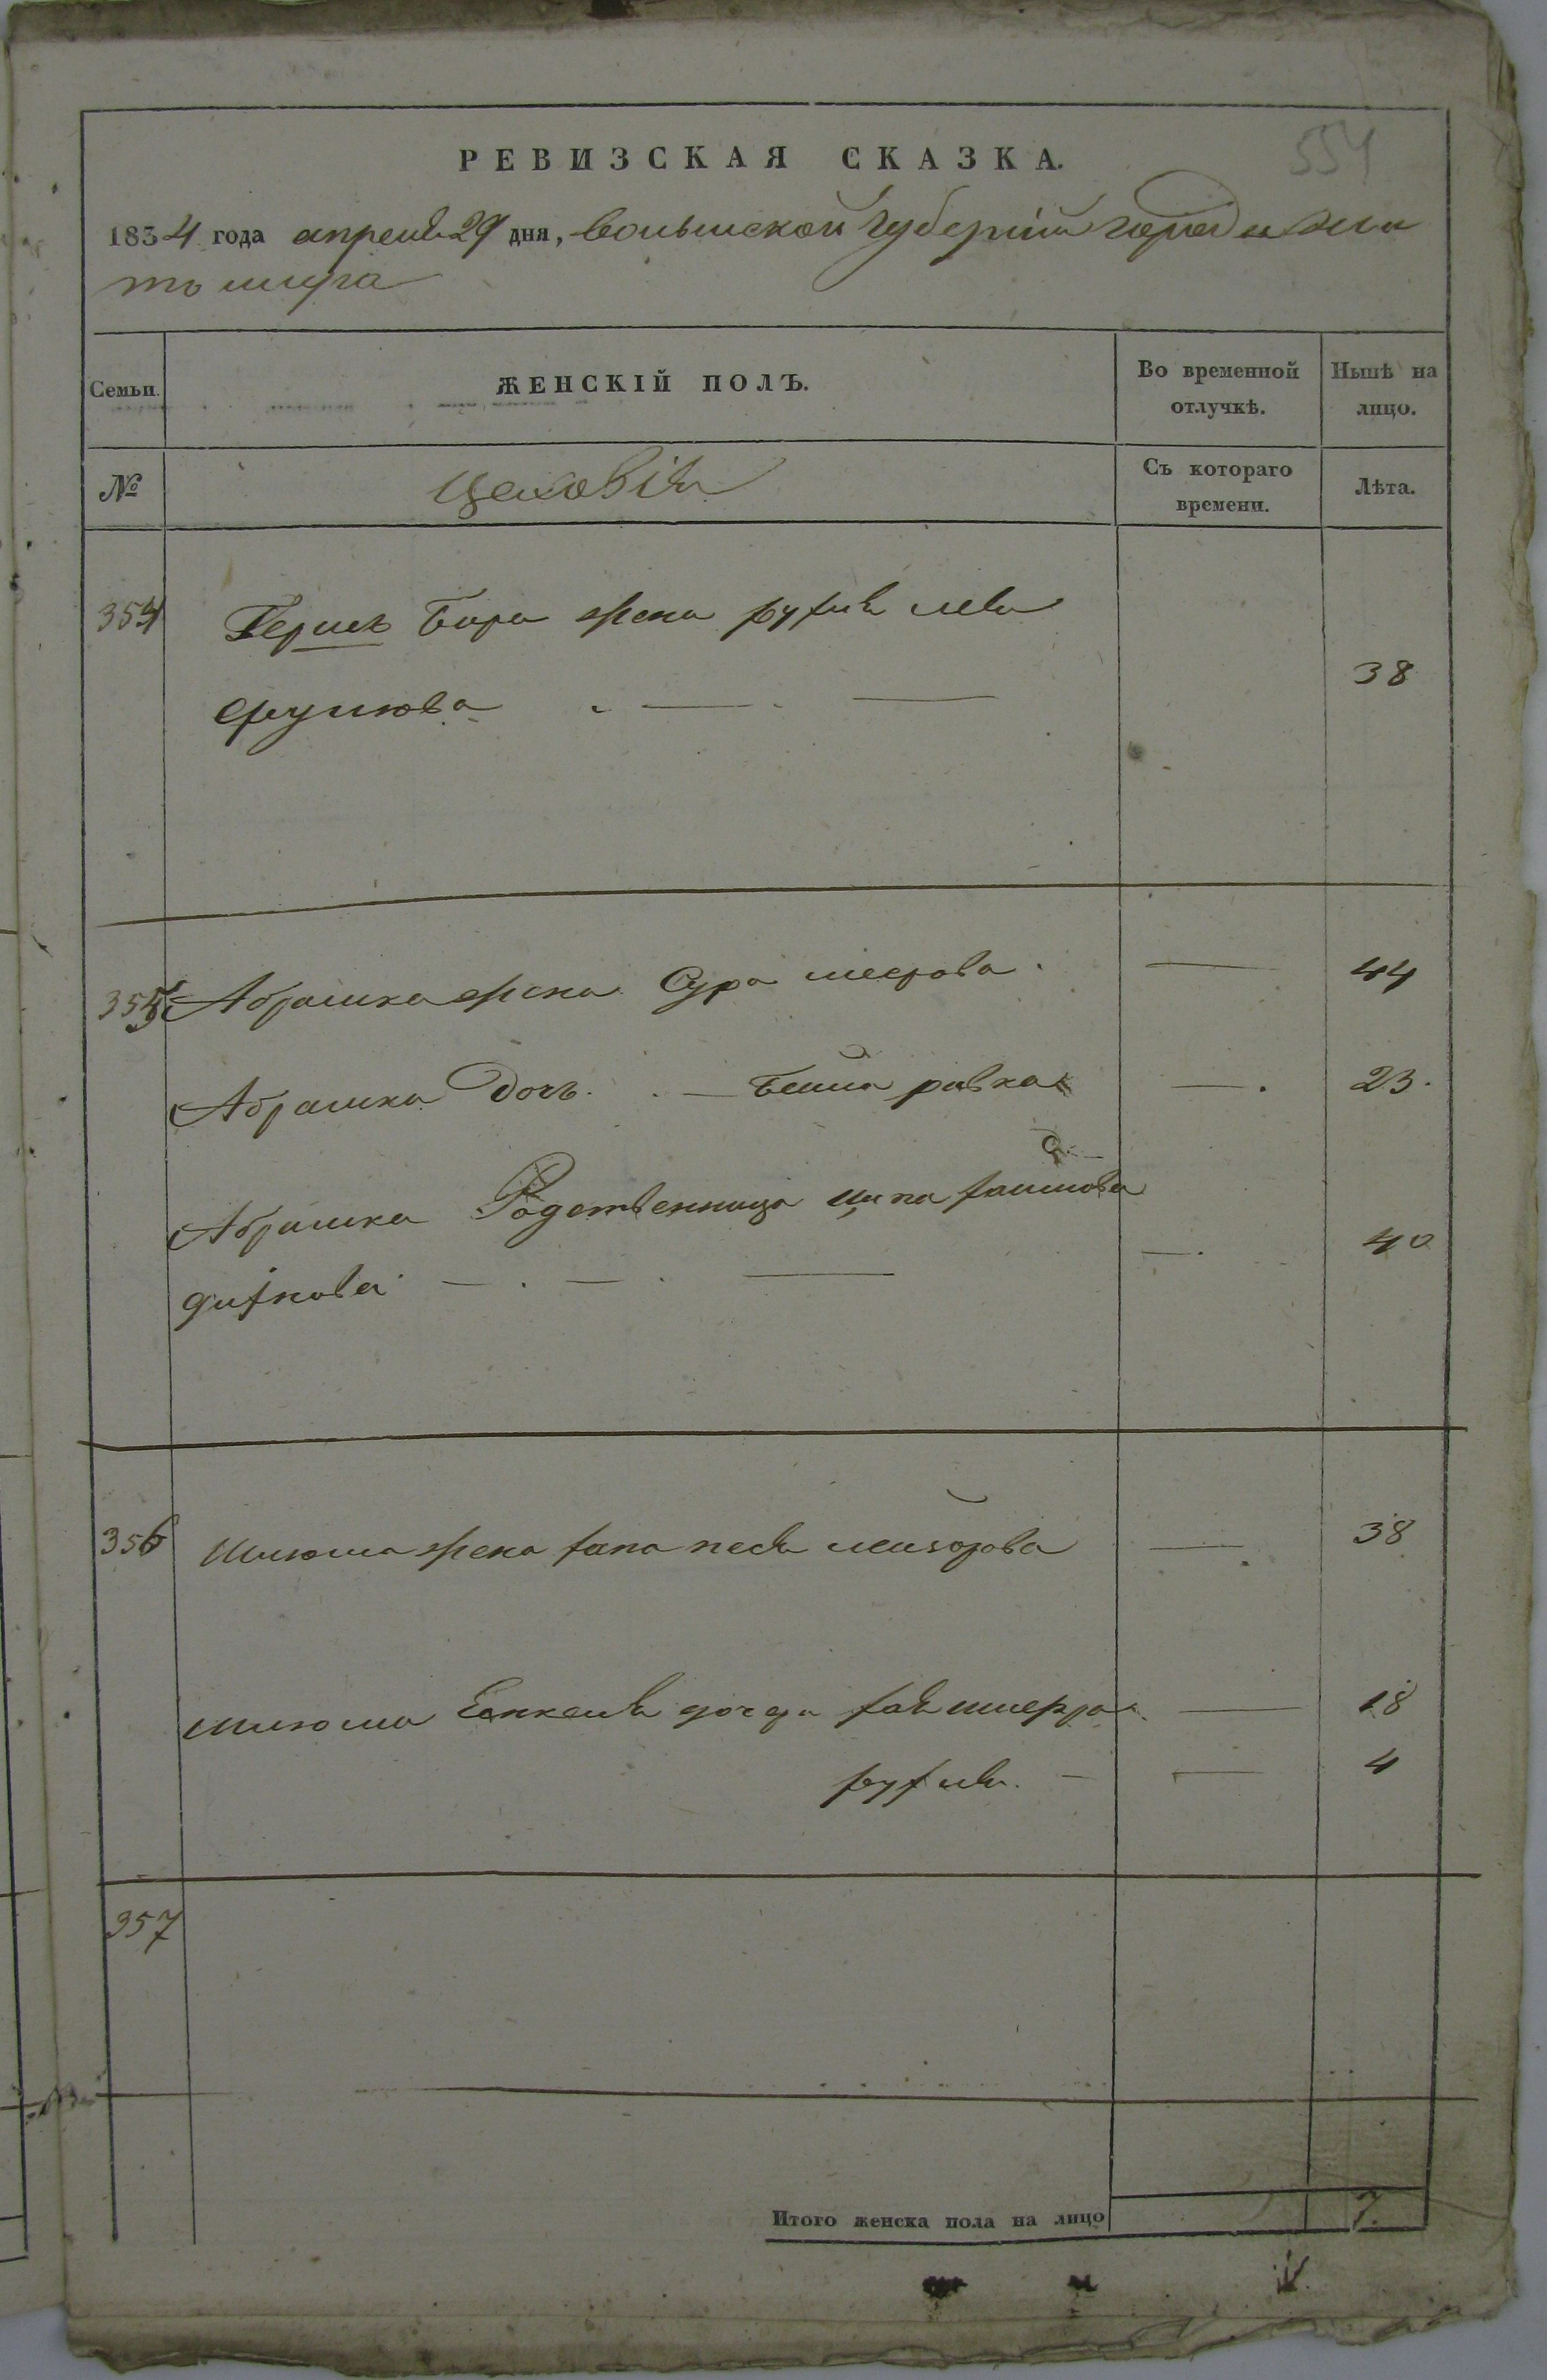 554
РЕВИЗСКАЯ СКАЗКА.
1834 года апреля 29 дня, волынской губерніи города жи
томира
Семьи. ЖЕНСКІЙ ПОЛЪ. Во временной отлучкѣ. Нынѣ на лицо.
№ цеховія Съ котораго времени. Лѣта.
354 Гершъ Бера жена рухля лея
38
сруліова
355 Абрашка жена Сура меерова 44
Абрашка дочь Бейла ривка 23.
Абрашка Родственница ципа хаимова
40
356 Шліома жена хана песя лейзорова 38
шліома дочери хая 18
рухля 4
357
Итого женска пола на лицо 7.